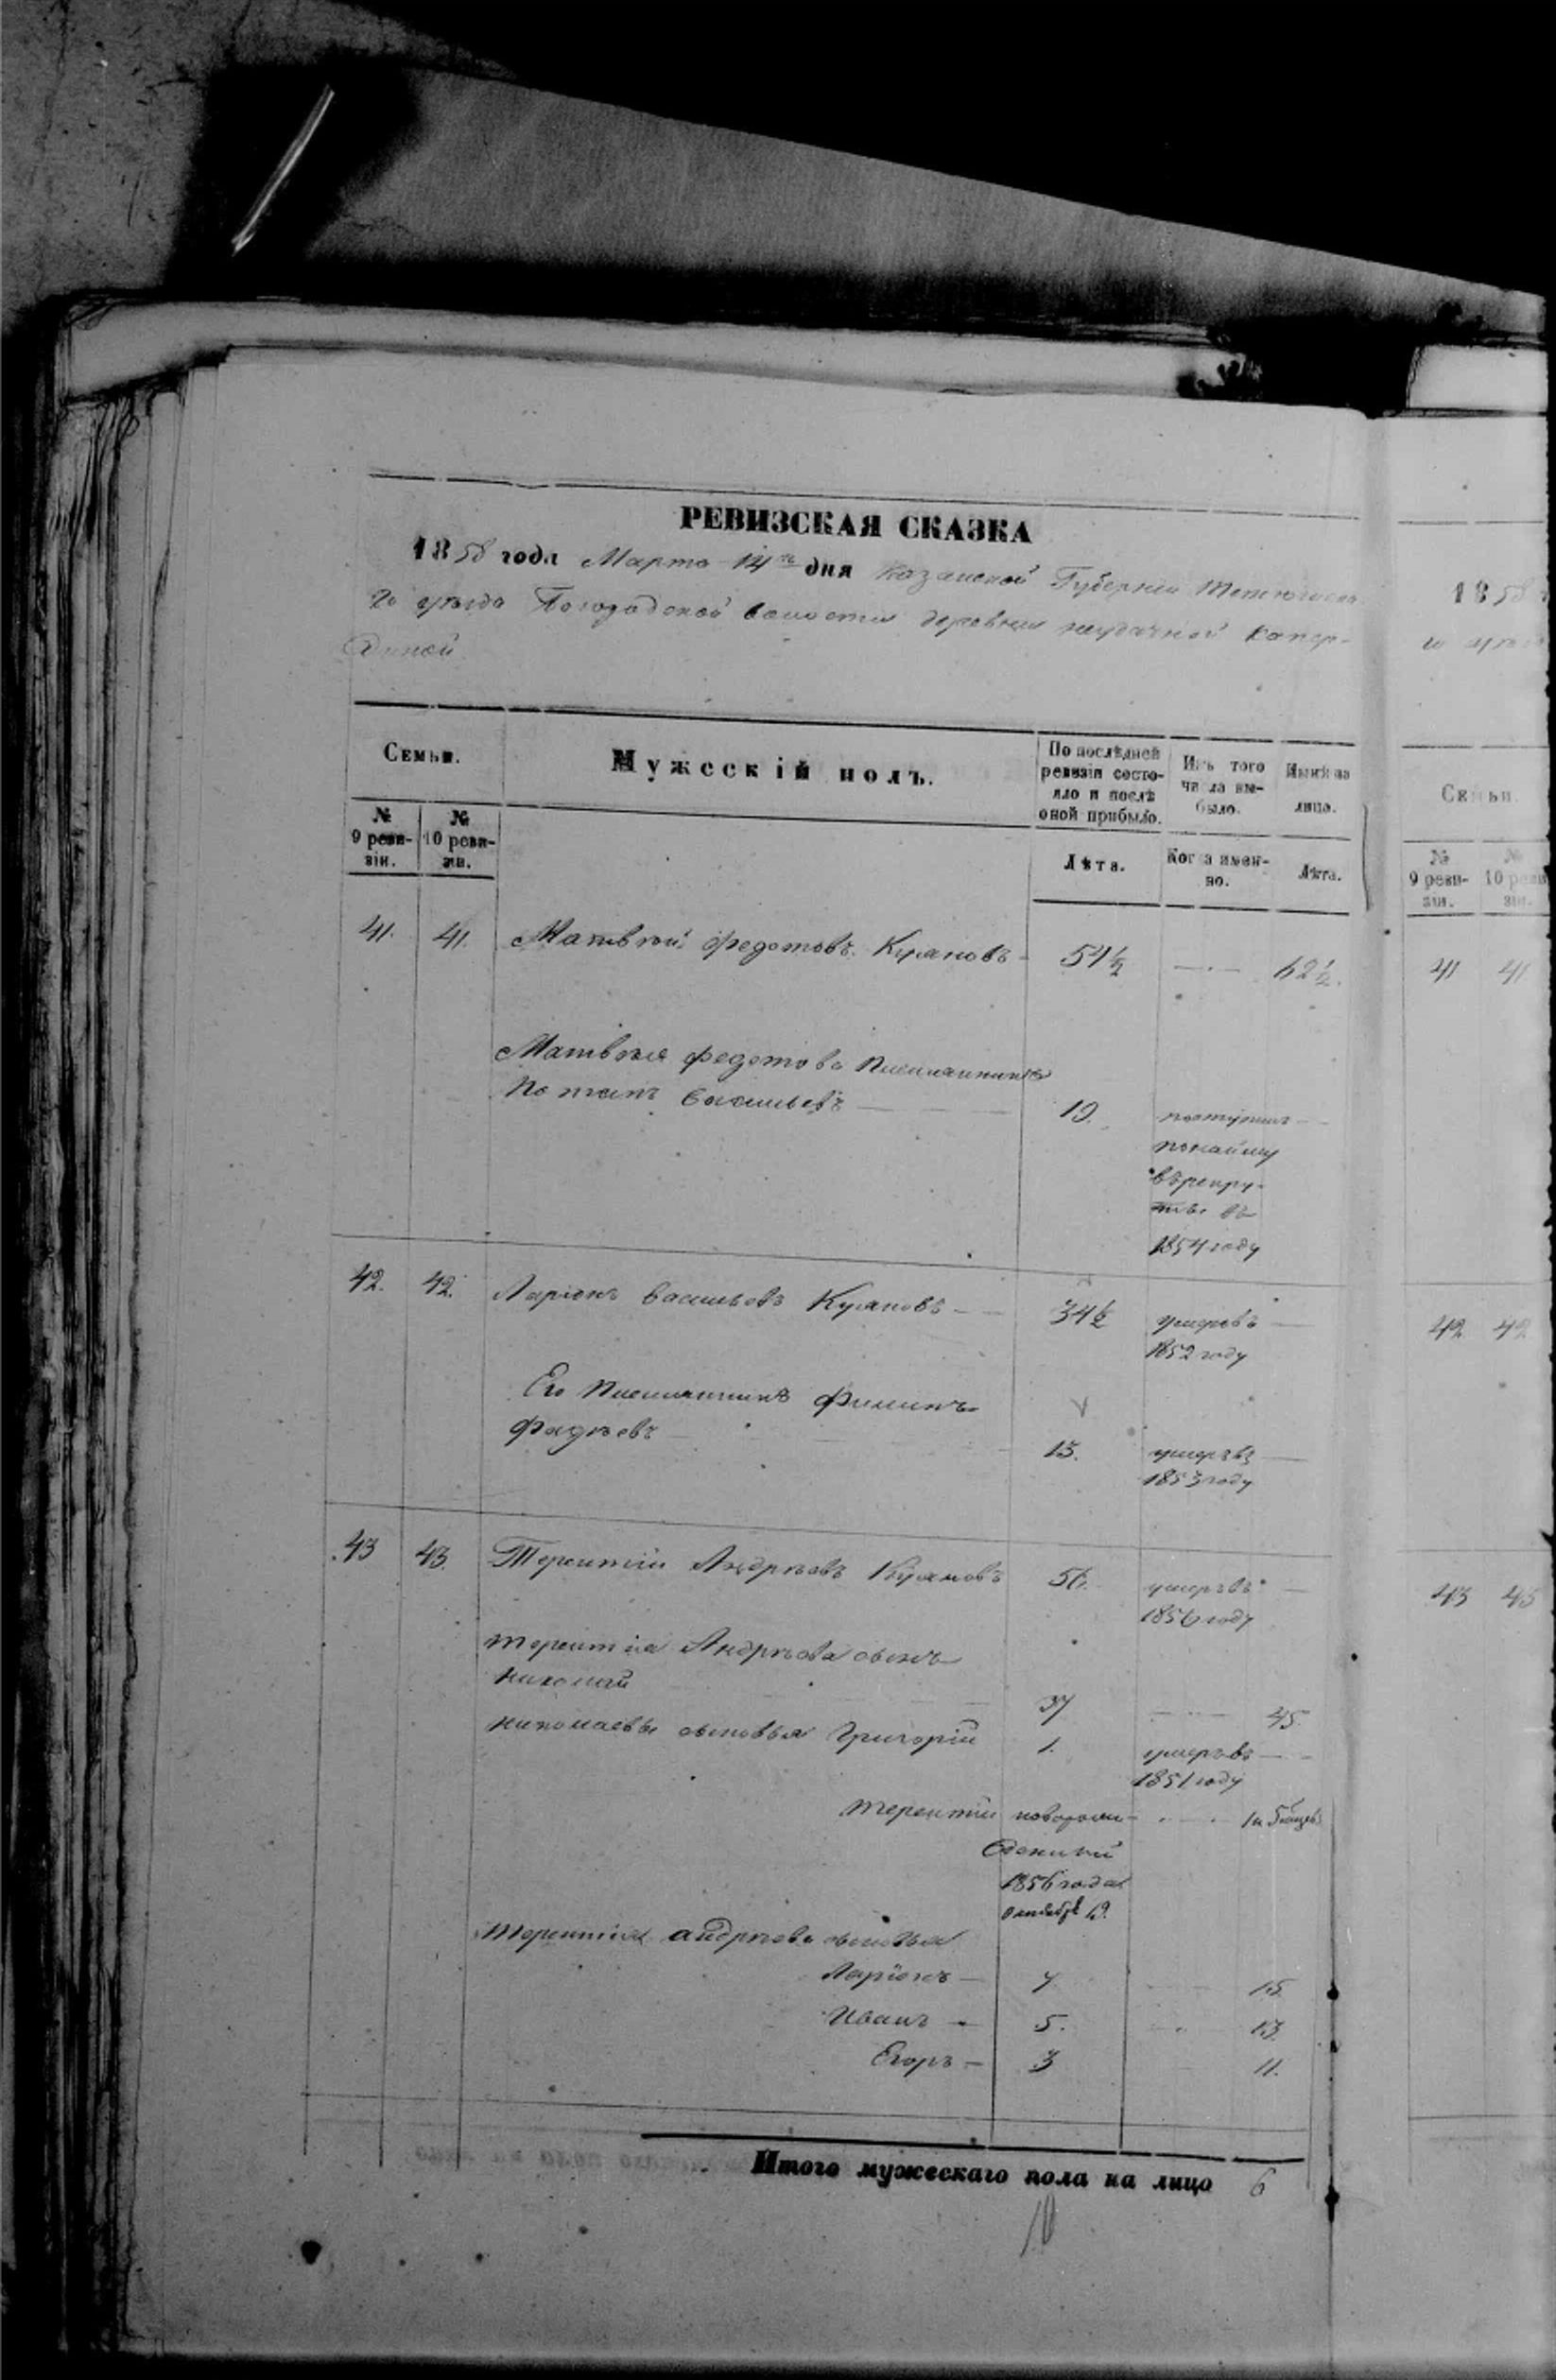 РЕВИЗСКАЯ СКАЗКА
1858 года Марта 14го дня Казанской Губернии Тетюшска
го уѣзда волости деревни неудачной Капер-
диной
Семьи.
№ 9 ревизіи.
№ 10 ревизіи.
Мужескій полъ.
По послѣдней ревизіи состояло и послѣ оной прибыло.
Изъ того числа выбыло.
Нынѣ на лицо.
Лѣта.
Когда именно.
Лѣта.
41. 41. Матвѣй Федотовъ Куяновъ 54½ — 62½.
Матвѣя Федотова племянникъ
Потапъ Васильевъ 19. поступилъ
понайму
въ рекру-
ты въ
1854 году
42. 42. Ларіонъ Васильевъ Куяновъ 34½ умеръ въ
1852 году
Его племянникъ Филипъ
Фадѣевъ 13. умеръ въ
1853 году
43 43. Терентій Андрѣевъ Куяновъ 56. умеръ въ
1856 году
Терентія Андрѣева сынъ
Николай 37 — 45.
Николаевы сыновья Григорій 1. умеръ въ
1851 году
Терентій новорож-
денный
1856 года
октября 19.
Терентія Андрѣева сыновья
Ларіонъ — 7 15.
Иванъ — 5. 13.
Егоръ — 3 11.
Итого мужескаго пола на лицо 6
1858
го уѣзда
Семьи.
№ 9 ревизіи.
№ 10 ревизіи.
41 41
42 42
43 43